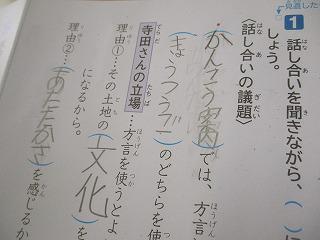 見直した
1 話し合いを聞きながら、（
しょう。
〈話し合いの議題〉
・（かんこう案内）では、方言と
（きょうつうご）のどちらを使
寺田さんの立場…方言を使
理由①…その土地の（文化）を
になるから。
理由②…（あたたかさ）を感じるか
使うとよ